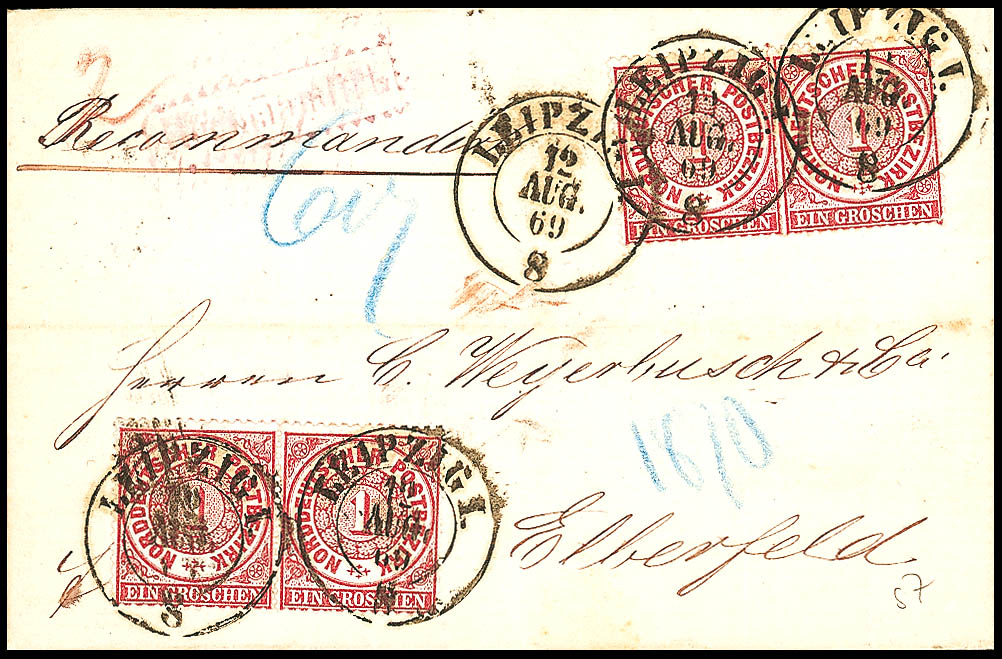 Recommandirt
LEIPZIG I.
12
AUG.
69
8
LEIPZIG I.
12
AUG.
69
8
LEIPZIG I.
12
AUG.
69
8
NORDDEUTSCHER POSTBEZIRK
1
EIN GROSCHEN
NORDDEUTSCHER POSTBEZIRK
1
EIN GROSCHEN
Herren C. Weyerbusch & Co
Elberfeld
LEIPZIG I.
12
AUG.
69
8
LEIPZIG I.
12
AUG.
69
8
NORDDEUTSCHER POSTBEZIRK
1
EIN GROSCHEN
NORDDEUTSCHER POSTBEZIRK
1
EIN GROSCHEN
57